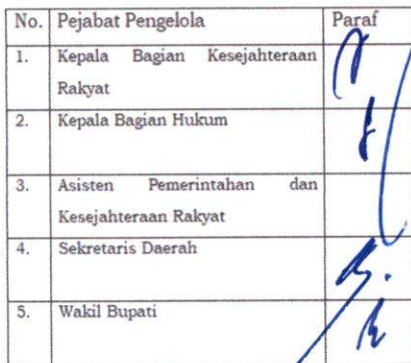 No. Pejabat Pengelola Paraf
1. Kepala Bagian Kesejahteraan
Rakyat
2. Kepala Bagian Hukum
3. Asisten Pemerintahan dan
Kesejahteraan Rakyat
4. Sekretaris Daerah
5. Wakil Bupati